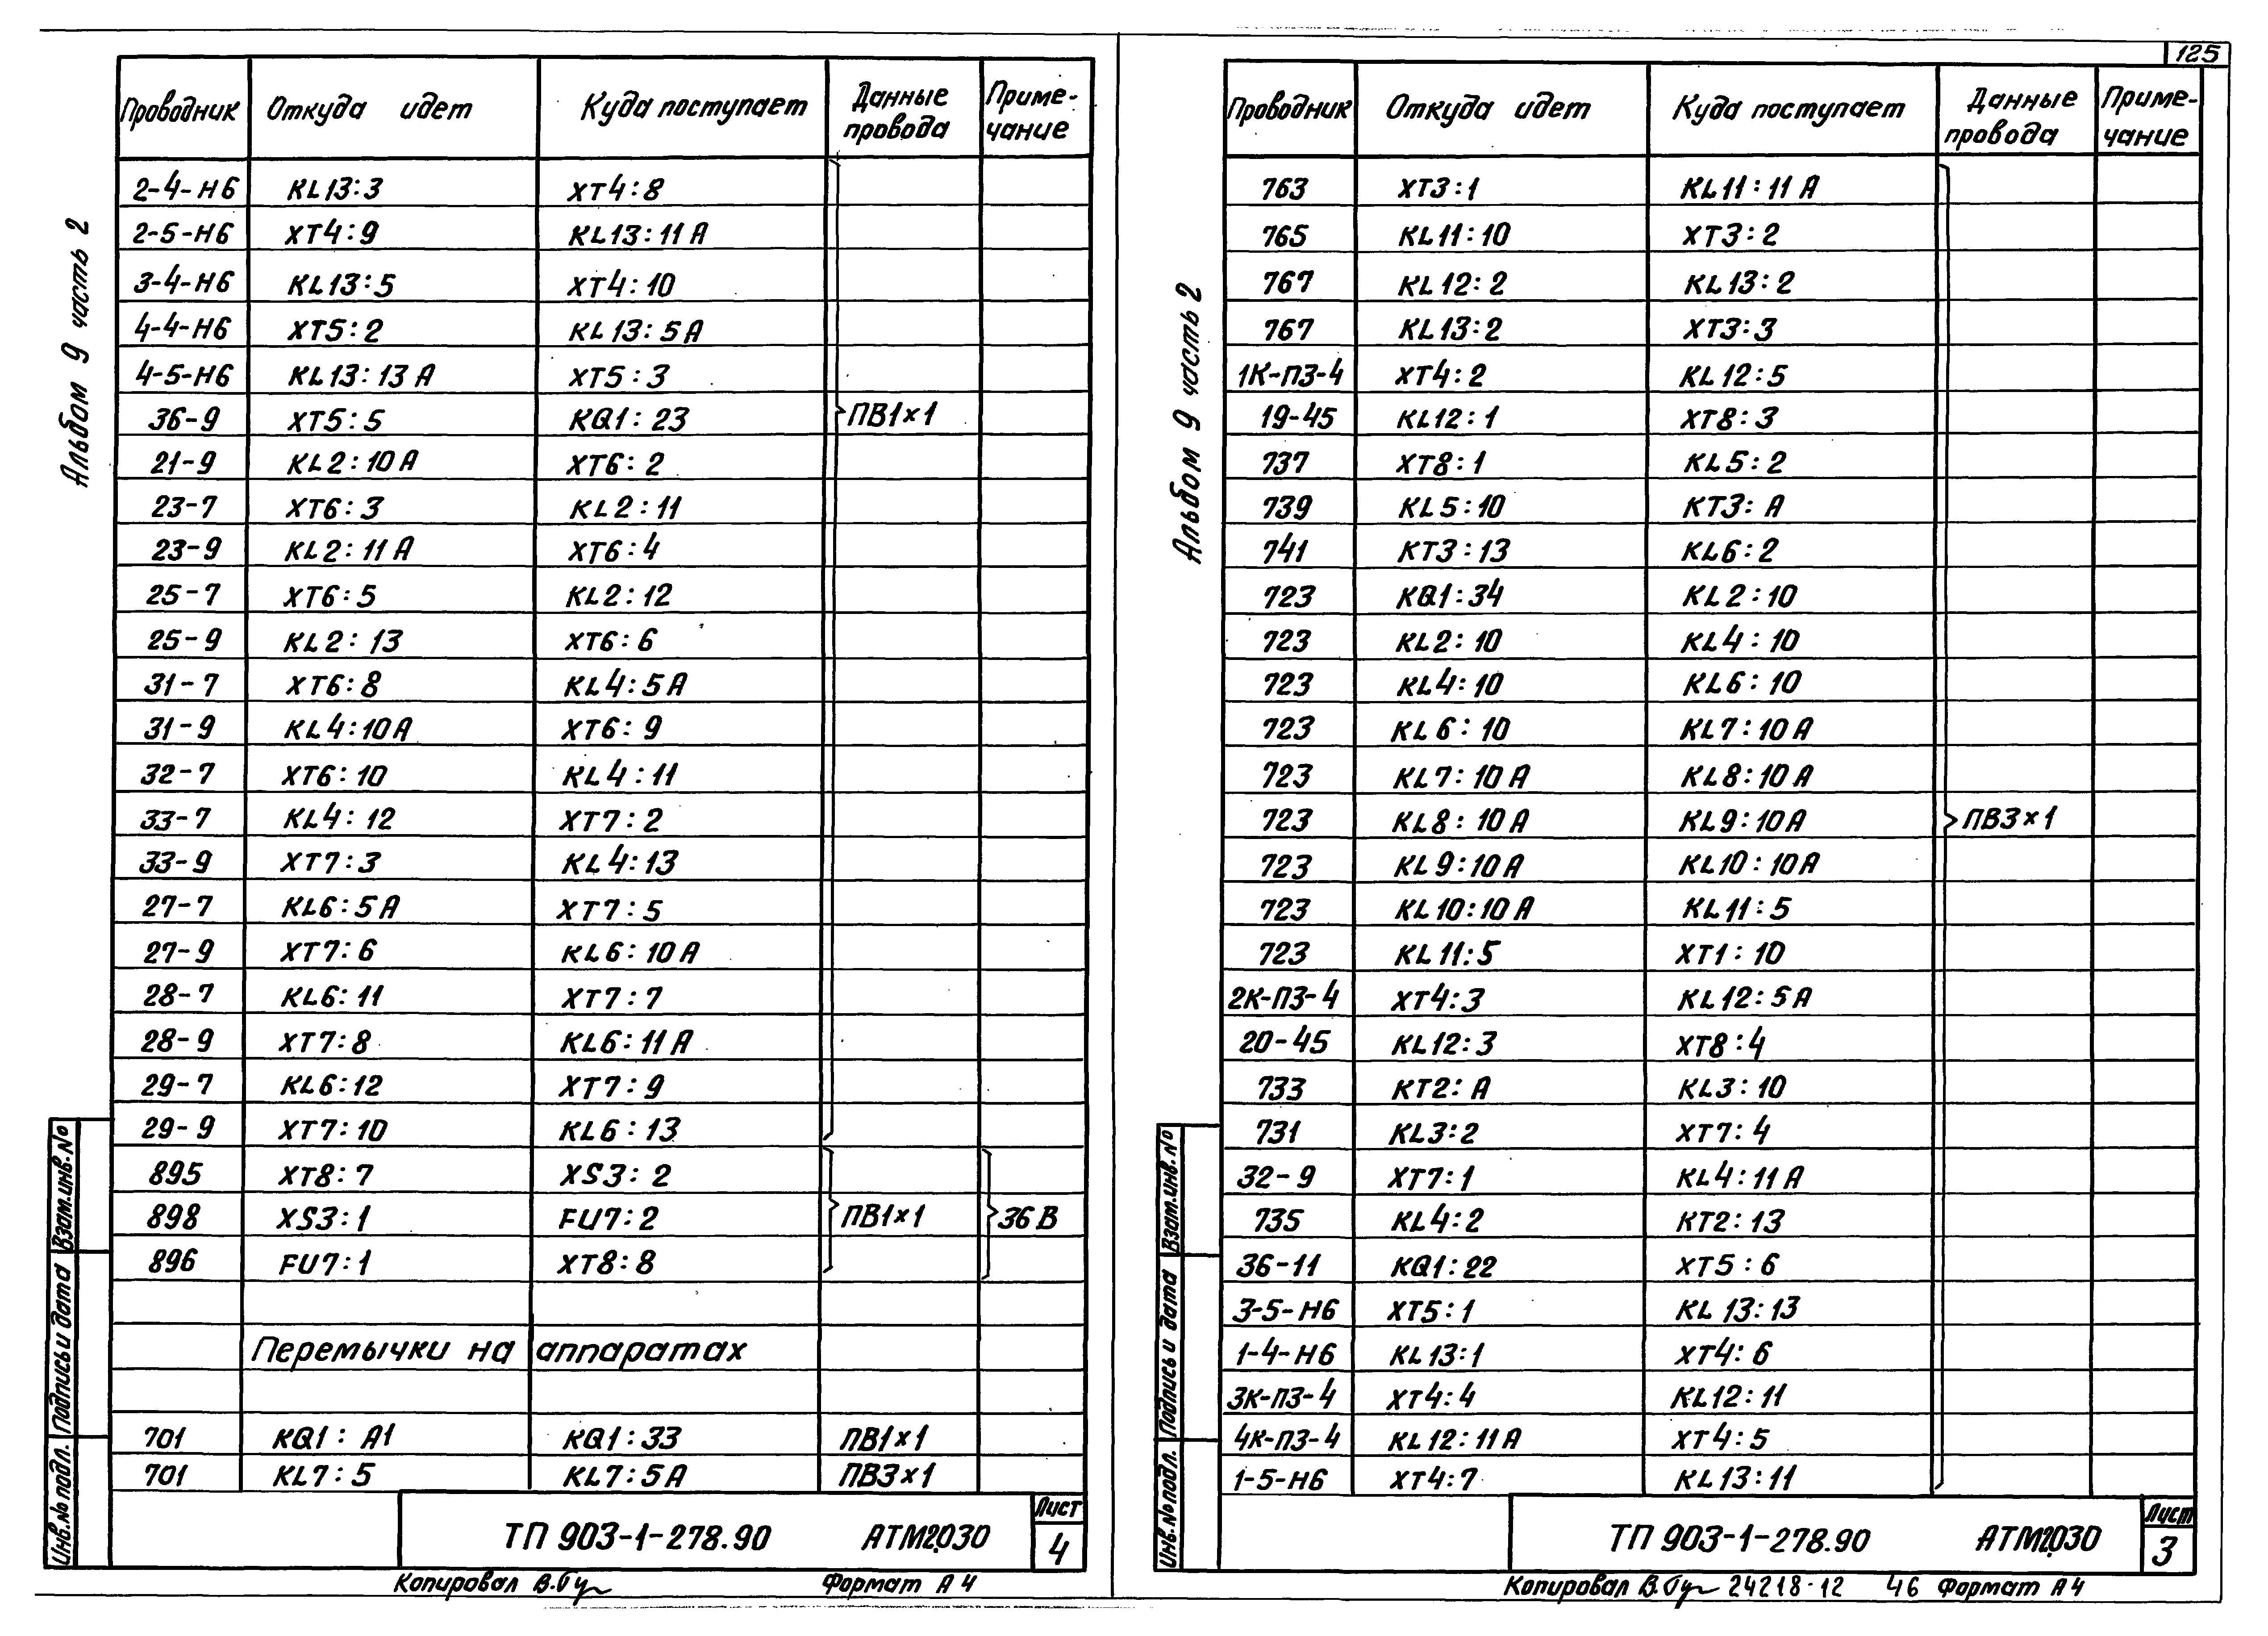 125
Альбом 9 часть 2
Проводник Откуда идет Куда поступает Данные провода Приме-чание
2-4-Н6 KL13:3 XT4:8
2-5-Н6 XT4:9 KL13:11A
3-4-Н6 KL13:5 XT4:10
4-4-Н6 XT5:2 KL13:5A
4-5-Н6 KL13:13A XT5:3
36-9 XT5:5 KQ1:23 ПВ1×1
21-9 KL2:10A XT6:2
23-7 XT6:3 KL2:11
23-9 KL2:11A XT6:4
25-7 XT6:5 KL2:12
25-9 KL2:13 XT6:6
31-7 XT6:8 KL4:5A
31-9 KL4:10A XT6:9
32-7 XT6:10 KL4:11
33-7 KL4:12 XT7:2
33-9 XT7:3 KL4:13
27-7 KL6:5A XT7:5
27-9 XT7:6 KL6:10A
28-7 KL6:11 XT7:7
28-9 XT7:8 KL6:11A
29-7 KL6:12 XT7:9
29-9 XT7:10 KL6:13
895 XT8:7 XS3:2
898 XS3:1 FU7:2 ПВ1×1 36В
896 FU7:1 XT8:8
Перемычки на аппаратах
701 KQ1:A1 KQ1:33 ПВ1×1
701 KL7:5 KL7:5A ПВ3×1
Взам.инв.№
Подпись и дата
Инв.№подл.
ТП 903-1-278.90 АТМ2.030 Лист 4
Копировал Формат А4
Альбом 9 часть 2
Проводник Откуда идет Куда поступает Данные провода Приме-чание
763 XT3:1 KL11:11A
765 KL11:10 XT3:2
767 KL12:2 KL13:2
767 KL13:2 XT3:3
1К-П3-4 XT4:2 KL12:5
19-45 KL12:1 XT8:3
737 XT8:1 KL5:2
739 KL5:10 KT3:A
741 KT3:13 KL6:2
723 KQ1:34 KL2:10
723 KL2:10 KL4:10
723 KL4:10 KL6:10
723 KL6:10 KL7:10A
723 KL7:10A KL8:10A
723 KL8:10A KL9:10A ПВ3×1
723 KL9:10A KL10:10A
723 KL10:10A KL11:5
723 KL11:5 XT1:10
2К-П3-4 XT4:3 KL12:5A
20-45 KL12:3 XT8:4
733 KT2:A KL3:10
731 KL3:2 XT7:4
32-9 XT7:1 KL4:11A
735 KL4:2 KT2:13
36-11 KQ1:22 XT5:6
3-5-Н6 XT5:1 KL13:13
1-4-Н6 KL13:1 XT4:6
3К-П3-4 XT4:4 KL12:11
4К-П3-4 KL12:11A XT4:5
1-5-Н6 XT4:7 KL13:11
Взам.инв.№
Подпись и дата
Инв.№подл.
ТП 903-1-278.90 АТМ2.030 Лист 3
Копировал 24218-12 46 Формат А4